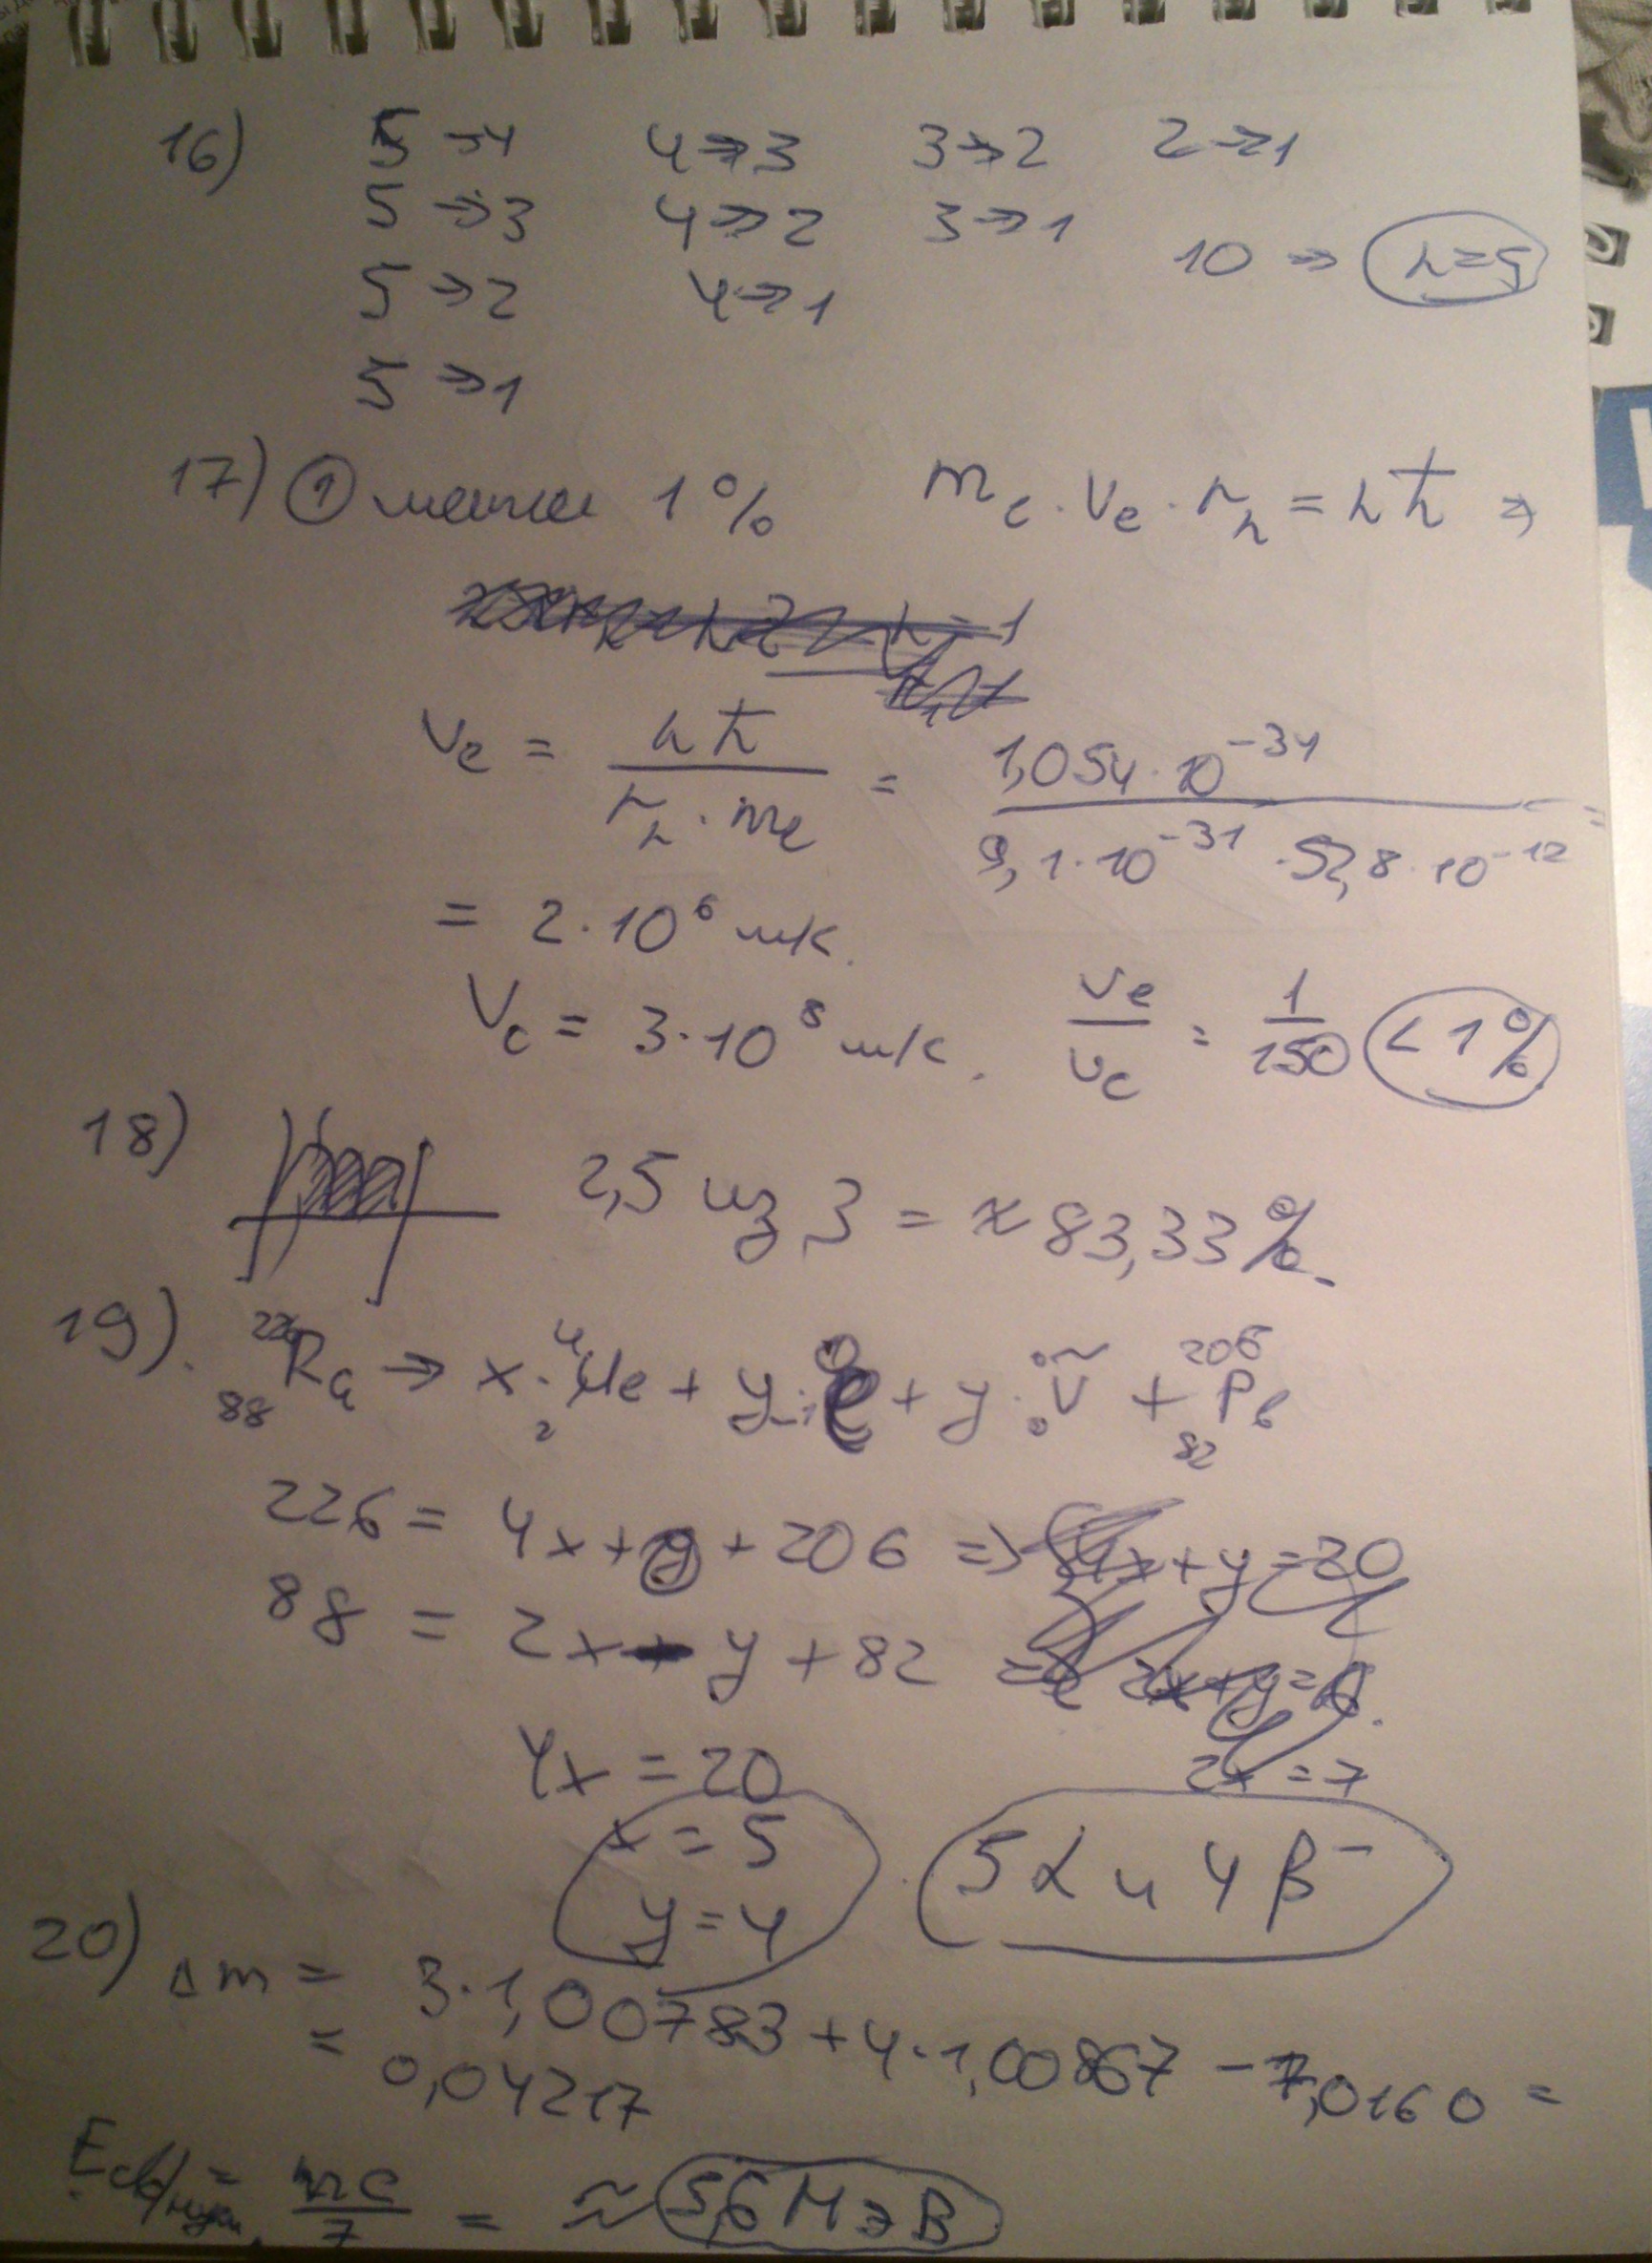 16) 5 → 4 4 → 3 3 → 2 2 → 1
5 → 3 4 → 2 3 → 1
10 ⇒ n = 5
5 → 2 4 → 1
5 → 1
17) ① менее 1% mₑ · Vₑ · rₙ = nħ ⇒
Vₑ = nħ / (rₙ · mₑ) = 1,054 · 10⁻³⁴ / (9,1 · 10⁻³¹ · 52,8 · 10⁻¹²) =
= 2 · 10⁶ м/с.
V_c = 3 · 10⁸ м/с. Vₑ / V_c = 1/150 < 1%
18) 2,5 из 3 = ≈ 83,33%.
19). ²²⁶₈₈Ra → x · ⁴₂He + y · ⁰₋₁e + y · ⁰₀ṽ + ²⁰⁶₈₂Pb
226 = 4x + + 206 ⇒ 4x + y = 20
88 = 2x - y + 82 ⇒ 2x + y = 6.
4x = 20 2x = 7
x = 5
y = 4
5α и 4β⁻
20) Δm = 3 · 1,00783 + 4 · 1,00867 - 7,0160 =
= 0,04217
= mc / 7 = ≈ 5,6 МэВ